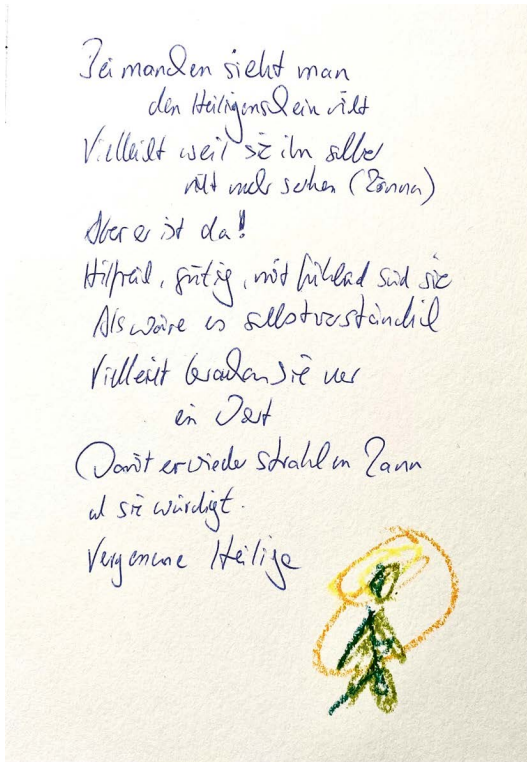 Bei manchen sieht man
den Heiligenschein nicht
Vielleicht weil sie ihn selber
nicht mehr sehen (können)
Aber er ist da!
Hilfreich, gütig, mitfühlend sind sie
Als wäre es selbstverständlich
Vielleicht brauchen sie nur
ein Wort
Damit er wieder strahlen kann
und sie würdigt.
Vergessene Heilige